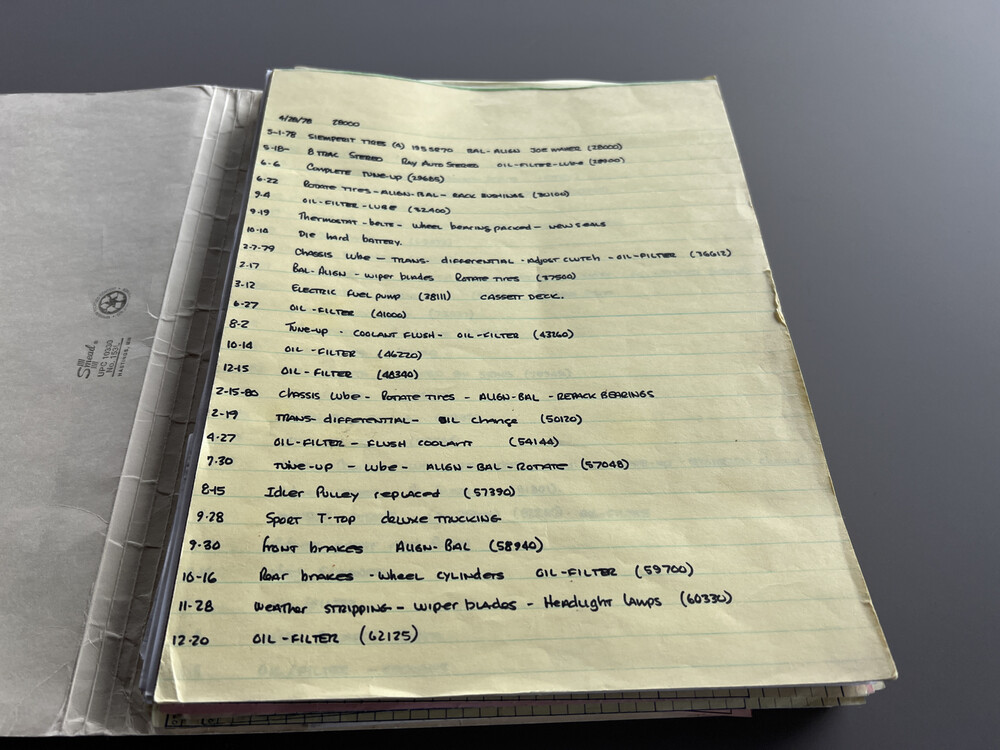 4/28/78 28000
5-1-78 SIEMPERIT TIRES (4) 195SR70 BAL-ALIGN (28000)
5-18- 8 TRAC STEREO RAY AUTO STEREO OIL-FILTER-LUBE (28900)
6-6 COMPLETE TUNE-UP (29685)
6-22 ROTATE TIRES-ALIGN-BAL- RACK BUSHINGS (30100)
9-4 OIL-FILTER-LUBE (32400)
9-19 Thermostat-belts- wheel bearing packed- NEW SEALS
10-10 DIE hard battery.
2-7-79 CHASSIS lube - TRANS. differential - Adjust clutch - OIL-FILTER (36612)
2-17 BAL-ALIGN - wiper blades ROTATE TIRES (37500)
3-12 ELECTRIC Fuel pump (38111) CASSETT DECK.
6-27 OIL-FILTER (41000)
8-2 TUNE-UP - COOLANT FLUSH- OIL-FILTER (43260)
10-14 OIL-FILTER (46220)
12-15 OIL-FILTER (48340)
2-15-80 CHASSIS lube - ROTATE TIRES - ALIGN-BAL - REPACK BEARINGS
2-19 TRANS- differential- OIL change (50120)
4-27 OIL-FILTER - FLUSH COOLANT (54144)
7-30 TUNE-UP - lube- ALIGN-BAL-ROTATE (57048)
8-15 Idler Pulley replaced (57390)
9-28 SPORT T-TOP deluxe TRUCKING
9-30 front brakes ALIGN-BAL (58940)
10-16 Rear brakes - wheel cylinders OIL-FILTER (59700)
11-28 weather STRIPPING- wiper blades - Headlight lamps (60330)
12-20 OIL-FILTER (62125)
Smead®
UPC 10330
No. 153L
HASTINGS, MN